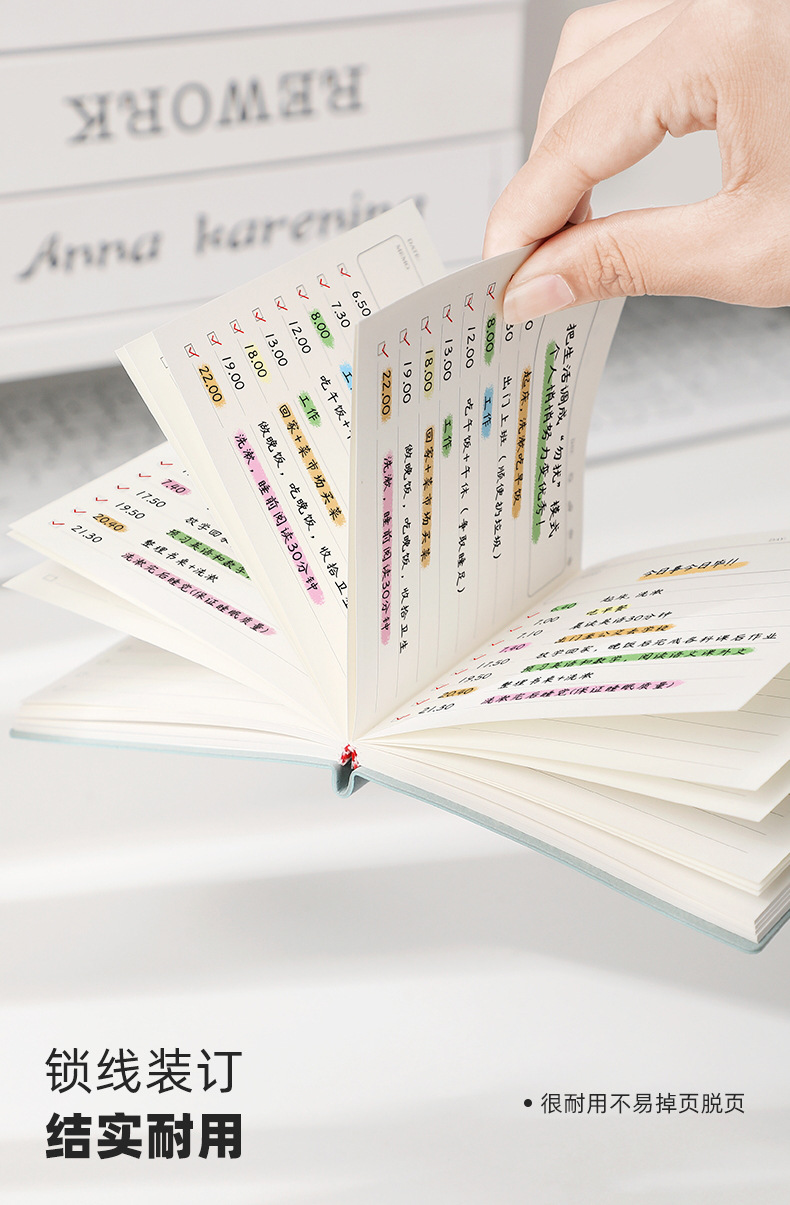 REWORK
Anna karenina
DATE:
MEMO
6.50
7.30
8.00
12.00
吃午饭+
13.00
工作
18.00
回家+菜市场买菜
19.00
做晚饭，吃晚饭，收拾卫生
22.00
洗漱，睡前阅读30分钟
把生活调成“勿扰”模式
个人悄悄努力变优秀！
起床 洗漱吃早饭
出门上班（顺便扔垃圾）
8.00
工作
12.00
吃午饭+午休（争取睡足）
13.00
工作
18.00
回家+菜市场买菜
19.00
做晚饭，吃晚饭，收拾卫生
22.00
洗漱，睡前阅读30分钟
7.40
17.50
放学回家
19.50
预习英语和数学
20.40
整理书桌+洗漱
21.30
洗漱完后睡觉(保证睡眠质量)
DAY:
今日事今日毕!!
6.40
起床、洗漱
7.00
吃早餐
7.10
晨读英语30分钟
7.40
出门坐公交去学校
17.50
放学回家，晚饭后完成各科课后作业
19.50
预习英语和数学，阅读语文课外文
20.40
整理书桌+洗漱
21.30
洗漱完后睡觉(保证睡眠质量)
锁线装订
结实耐用
• 很耐用不易掉页脱页